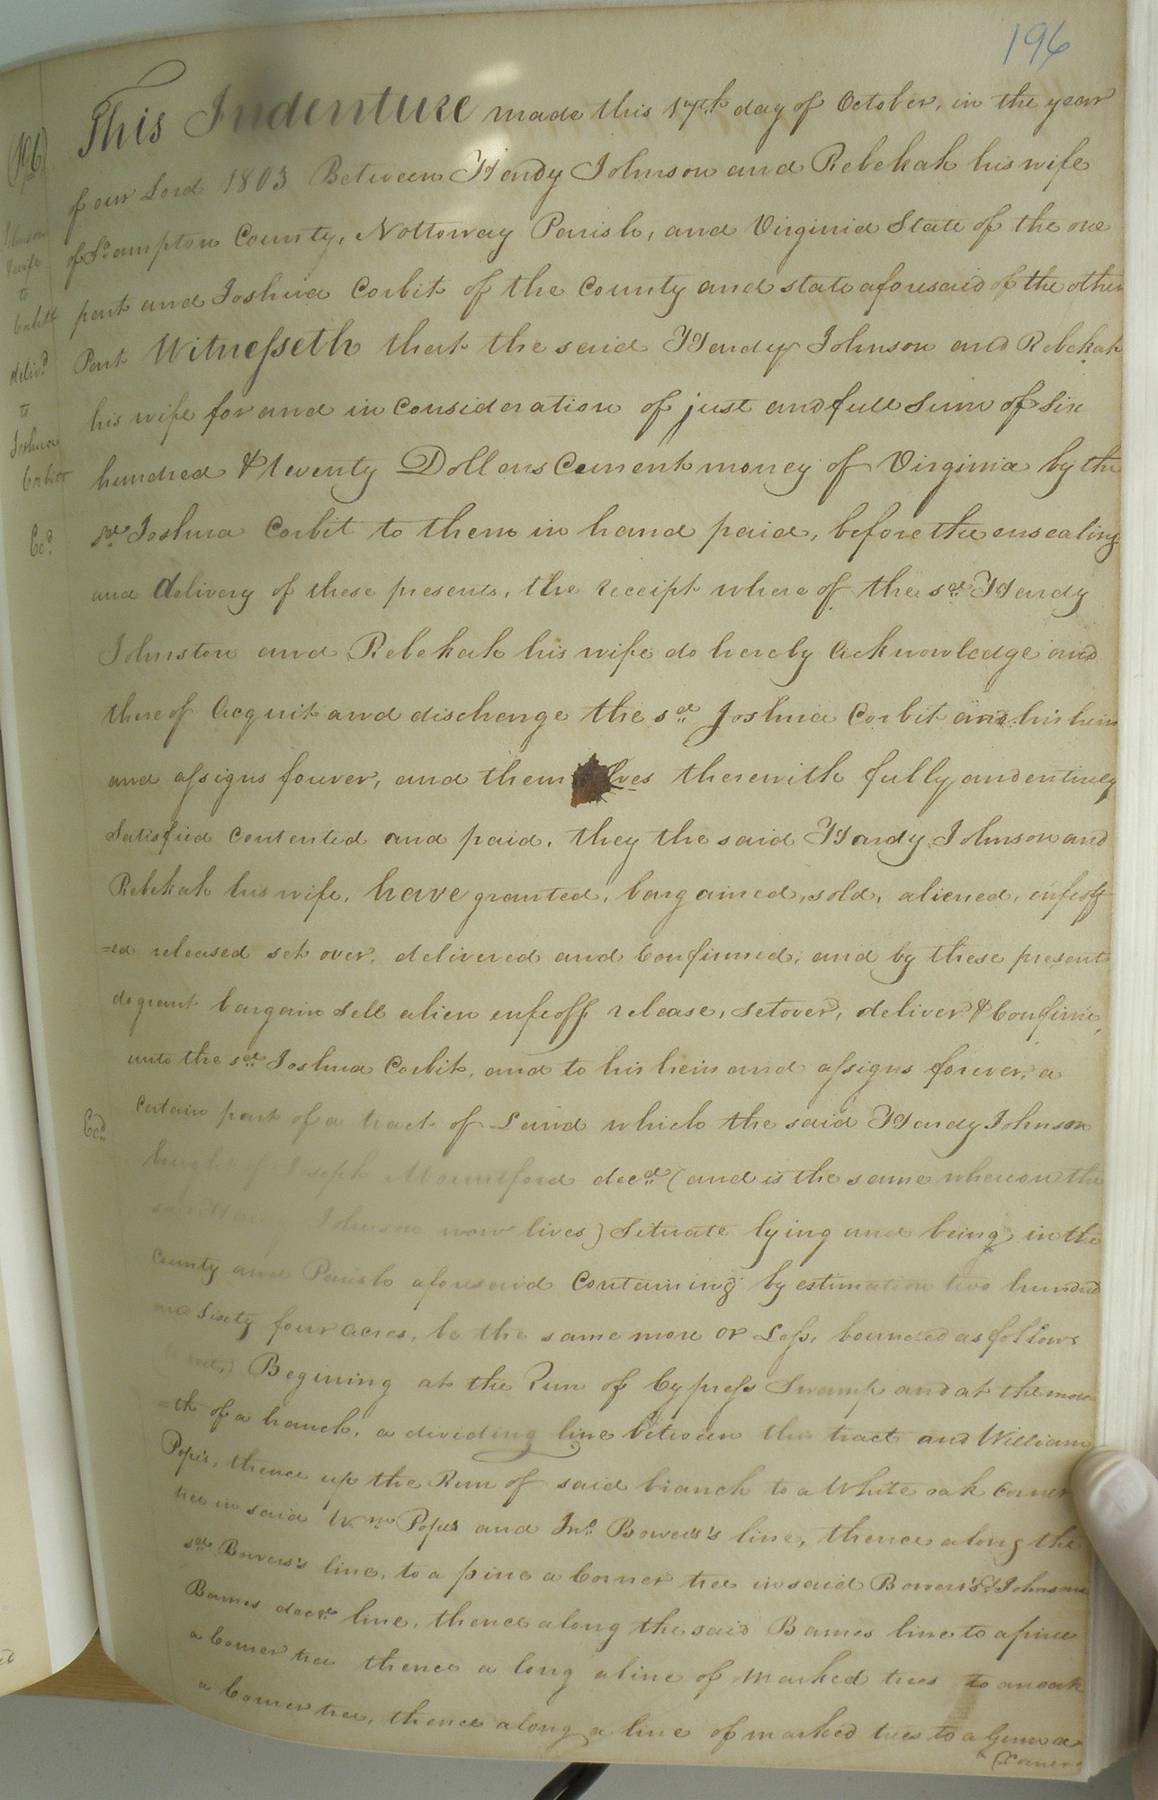 196
This Indenture made this 17th day of October, in the year
of our Lord 1803 Between Hardy Johnson and Rebekah his wife
of So.ampton County, Nottoway Parish, and Virginia State of the one
part and Joshua Corbit of the County and state aforesaid of the other
Part Witnesseth that the said Hardy Johnson and Rebekah
his wife for and in Consideration of just and full Sum of Six
hundred & twenty Dollars Current money of Virginia by the
sd. Joshua Corbit to them in hand paid, before the ensealing
and delivery of these presents, the receipt where of the sd. Hardy
Johnston and Rebekah his wife do hereby acknowledge and
there of acquit and discharge the sd. Joshua Corbit and his heirs
and assigns forever, and them lves therewith fully and entirely
Satisfied Contented and paid, they the said Hardy Johnson and
Rebekah his wife, have granted, bargained, sold, aliened, enfeoff
=ed released set over, delivered and Confirmed, and by these present
do grant bargain Sell alien enfeoff release, setover, deliver & Confirm,
unto the sd. Joshua Corbit, and to his heirs and assigns forever, a
Certain part of a tract of Land which the said Hardy Johnson
bought of Joseph Mountford decd. (and is the same whereon the
said Hardy Johnson now lives) Setuate lying and being in the
County and Parish aforesaid Containing by estimation two hundred
and Sixty four acres, be the same more or Less, bounded as follows
Begining at the Run of Cypress Swamp and at the mou
=th of a branch, a dividing line between this tract and William
Pope's, thence up the Run of said branch to a White oak Corner
tree in said Wm. Popes and Jno. Bowers's line, thence along the
sd. Bowers's line, to a pine a Corner tree in said Bowers's & Johnson
Barnes decd. line, thence along the said Barnes line to a pine
a Corner tree thence a long a line of marked trees to an oak
a Corner tree, thence along a line of marked trees to a Gum a
(Corner
Johnson
& wife
to
Corbitt
delivd.
to
Joshua
Corbitt
Cod.
Cod.